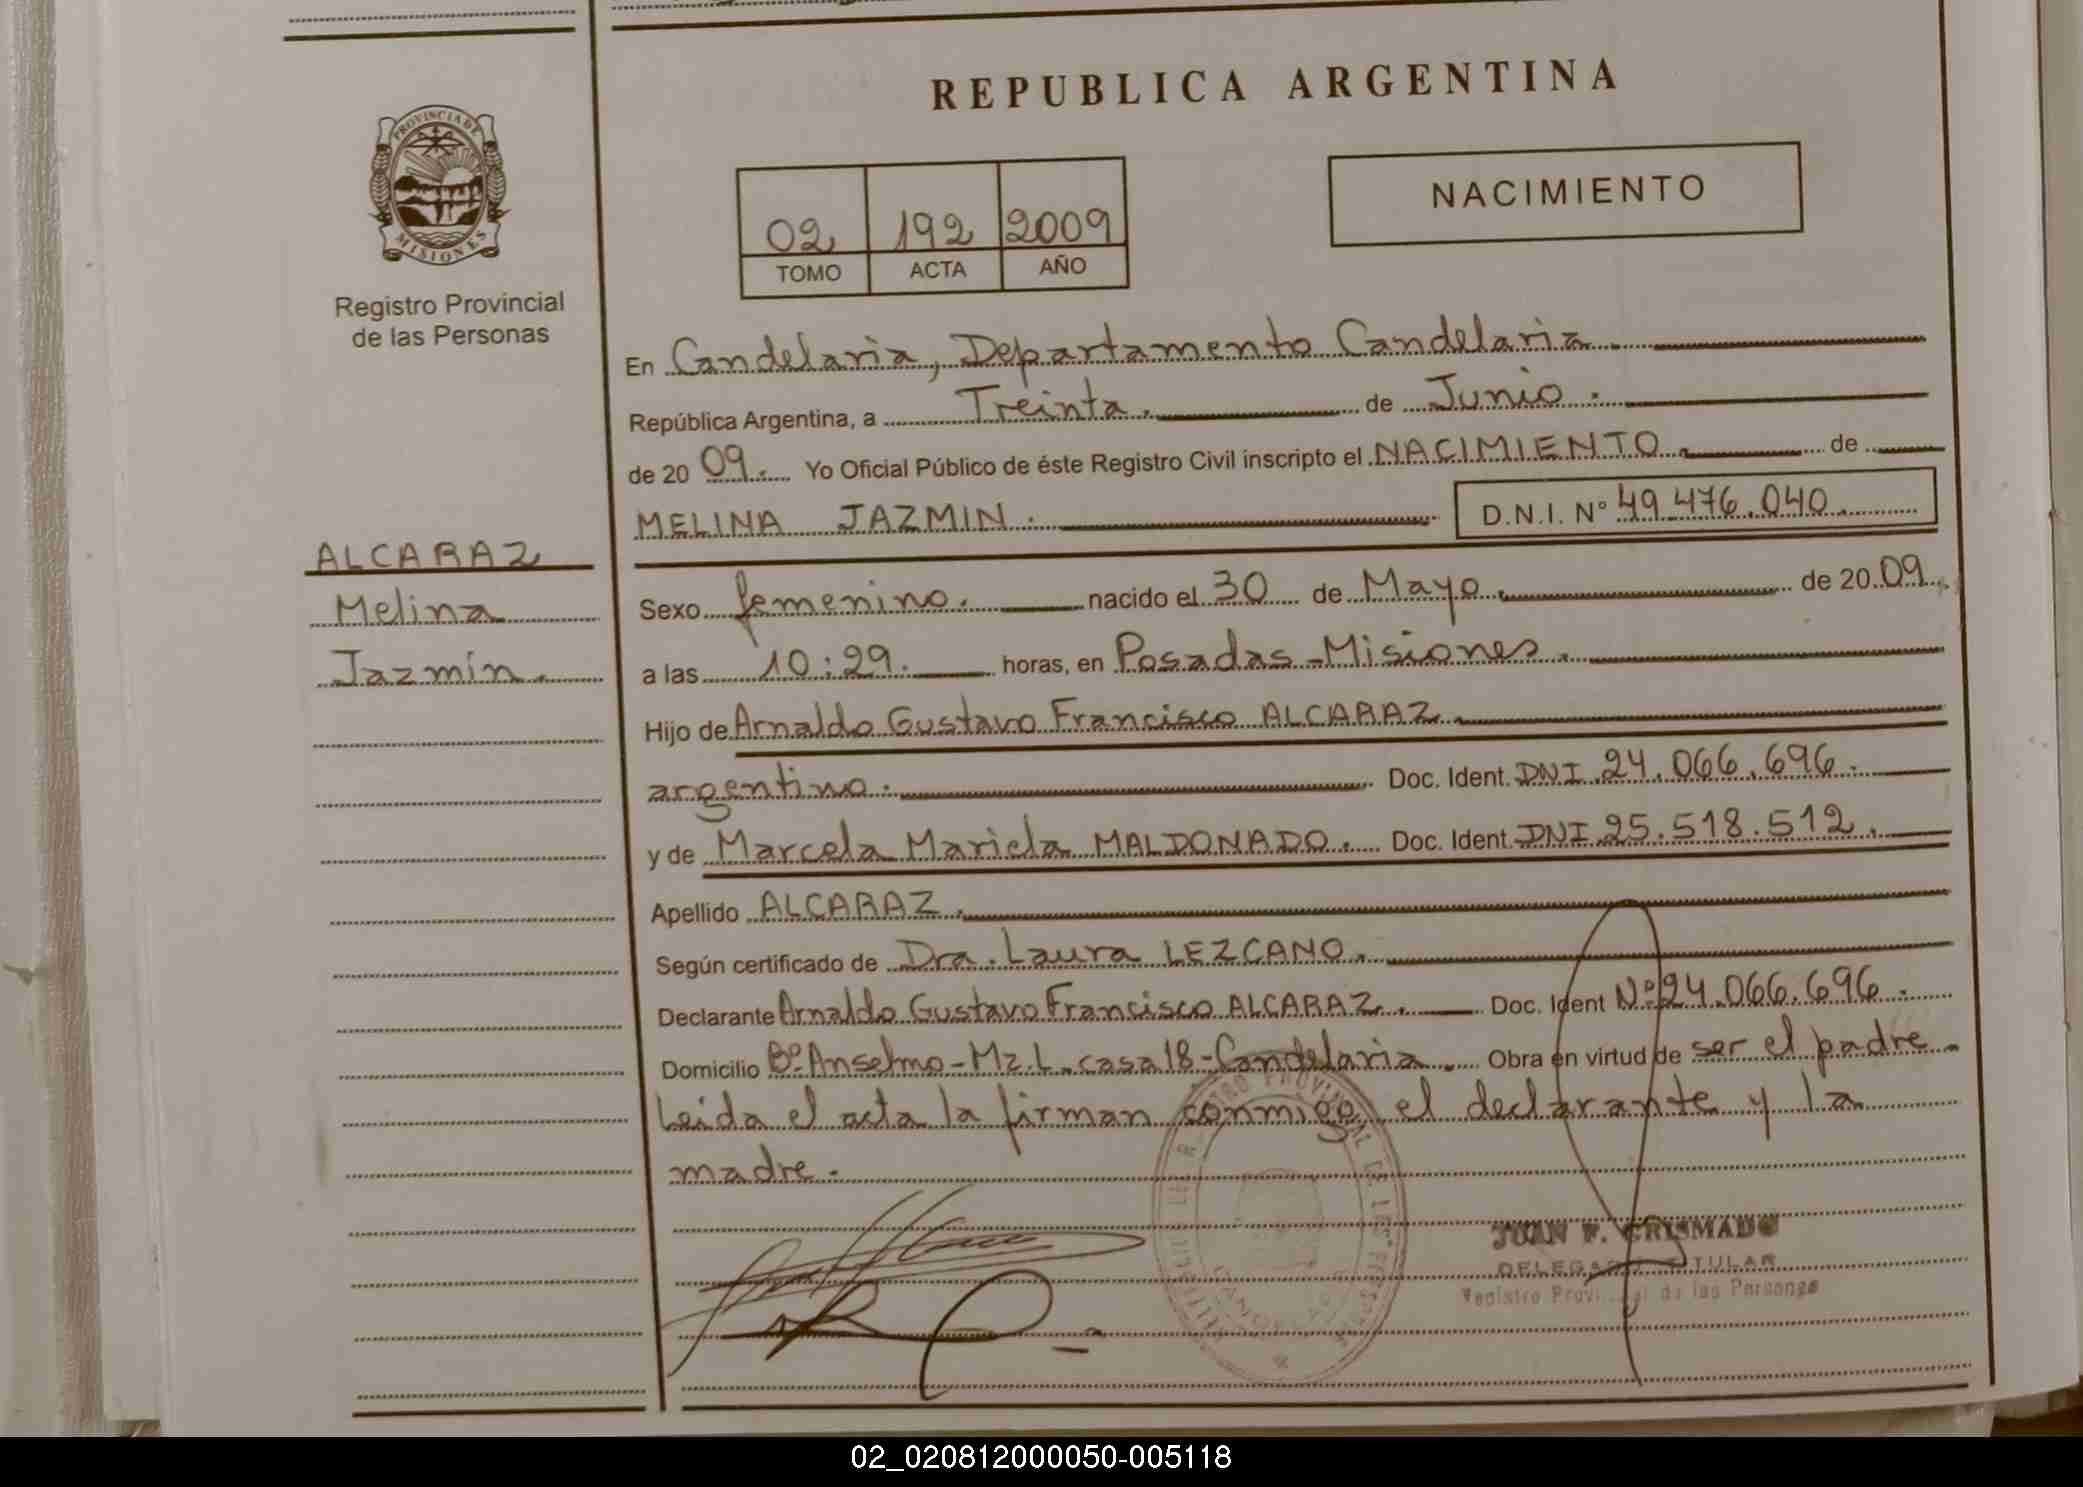 REPUBLICA ARGENTINA
PROVINCIA DE
MISIONES
Registro Provincial
de las Personas
02 192 2009
TOMO ACTA AÑO
NACIMIENTO
En Candelaria, Departamento Candelaria.
República Argentina, a Treinta. de Junio.
de 20 09. Yo Oficial Público de éste Registro Civil inscripto el NACIMIENTO. de
MELINA JAZMIN. D.N.I. Nº 49.476.040.
ALCARAZ
Melina
Jazmín.
Sexo femenino. nacido el 30 de Mayo. de 20 09.
a las 10:29. horas, en Posadas-Misiones.
Hijo de Arnaldo Gustavo Francisco ALCARAZ.
argentino. Doc. Ident. DNI 24.066.696.
y de Marcela Mariela MALDONADO. Doc. Ident. DNI 25.518.512.
Apellido ALCARAZ.
Según certificado de Dra. Laura LEZCANO.
Declarante Arnaldo Gustavo Francisco ALCARAZ. Doc. Ident Nº 24.066.696.
Domicilio Bº Anselmo-Mz.L-casa 18-Candelaria. Obra en virtud de ser el padre.
Leida el acta la firman conmigo el declarante y la
madre.
JUAN F. CRISMADO
DELEGADO TITULAR
Registro Provincial de las Personas
02_020812000050-005118